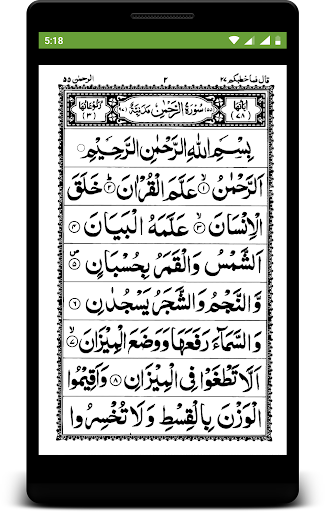 5:18
الرحمٰن ٥٥ ٢ قال فما خطبكم ٢٧
اٰیاتها (٧٨) سُوْرَةُ الرَّحْمٰنِ مَدَنِيَّةٌ رکوعاتها (٣)
بِسْمِ اللّٰهِ الرَّحْمٰنِ الرَّحِيْمِ
اَلرَّحْمٰنُ ۙ﴿١﴾ عَلَّمَ الْقُرْاٰنَ ؕ﴿٢﴾ خَلَقَ
الْاِنْسَانَ ۙ﴿٣﴾ عَلَّمَهُ الْبَيَانَ ﴿٤﴾
اَلشَّمْسُ وَالْقَمَرُ بِحُسْبَانٍ ۪﴿٥﴾
وَّالنَّجْمُ وَالشَّجَرُ يَسْجُدٰنِ ﴿٦﴾
وَالسَّمَآءَ رَفَعَهَا وَوَضَعَ الْمِيْزَانَ ۙ﴿٧﴾
اَلَّا تَطْغَوْا فِى الْمِيْزَانِ ﴿٨﴾ وَاَقِيْمُوا
الْوَزْنَ بِالْقِسْطِ وَلَا تُخْسِرُوا